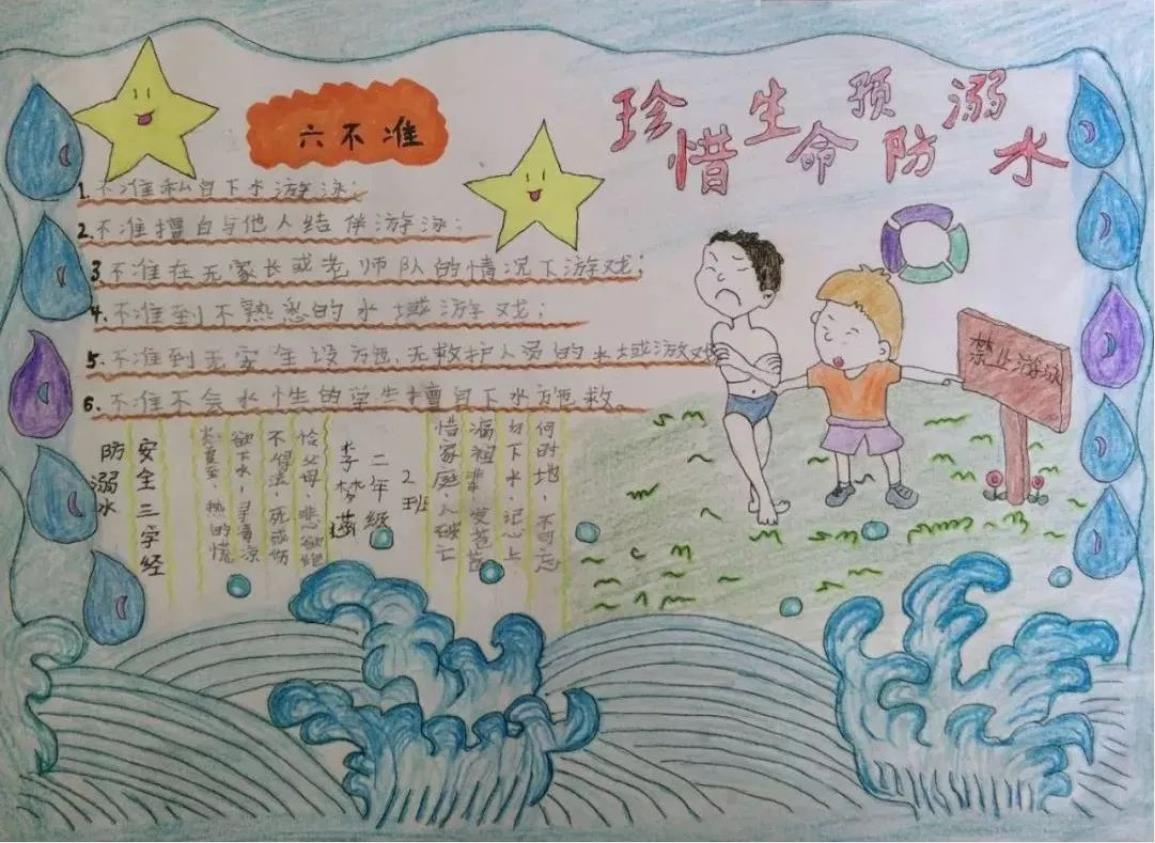 珍惜生命预防溺水
六不准
1.不准私自下水游泳;
2.不准擅自与他人结伴游泳;
3.不准在无家长或老师队的情况下游戏;
4.不准到不熟悉的水域游戏;
5.不准到无安全设施、无救护人员的水域游戏
6.不准不会水性的学生擅自下水施救。
禁止游泳
防溺水
安全三字经
炎夏至,热的慌
欲下水,寻清凉
不得法,死或伤
怜父母,悲欲绝
李梦
二年级
2班
惜家庭,人破亡
祖辈,发苍苍
勿下水,记心上
何时地,不可忘